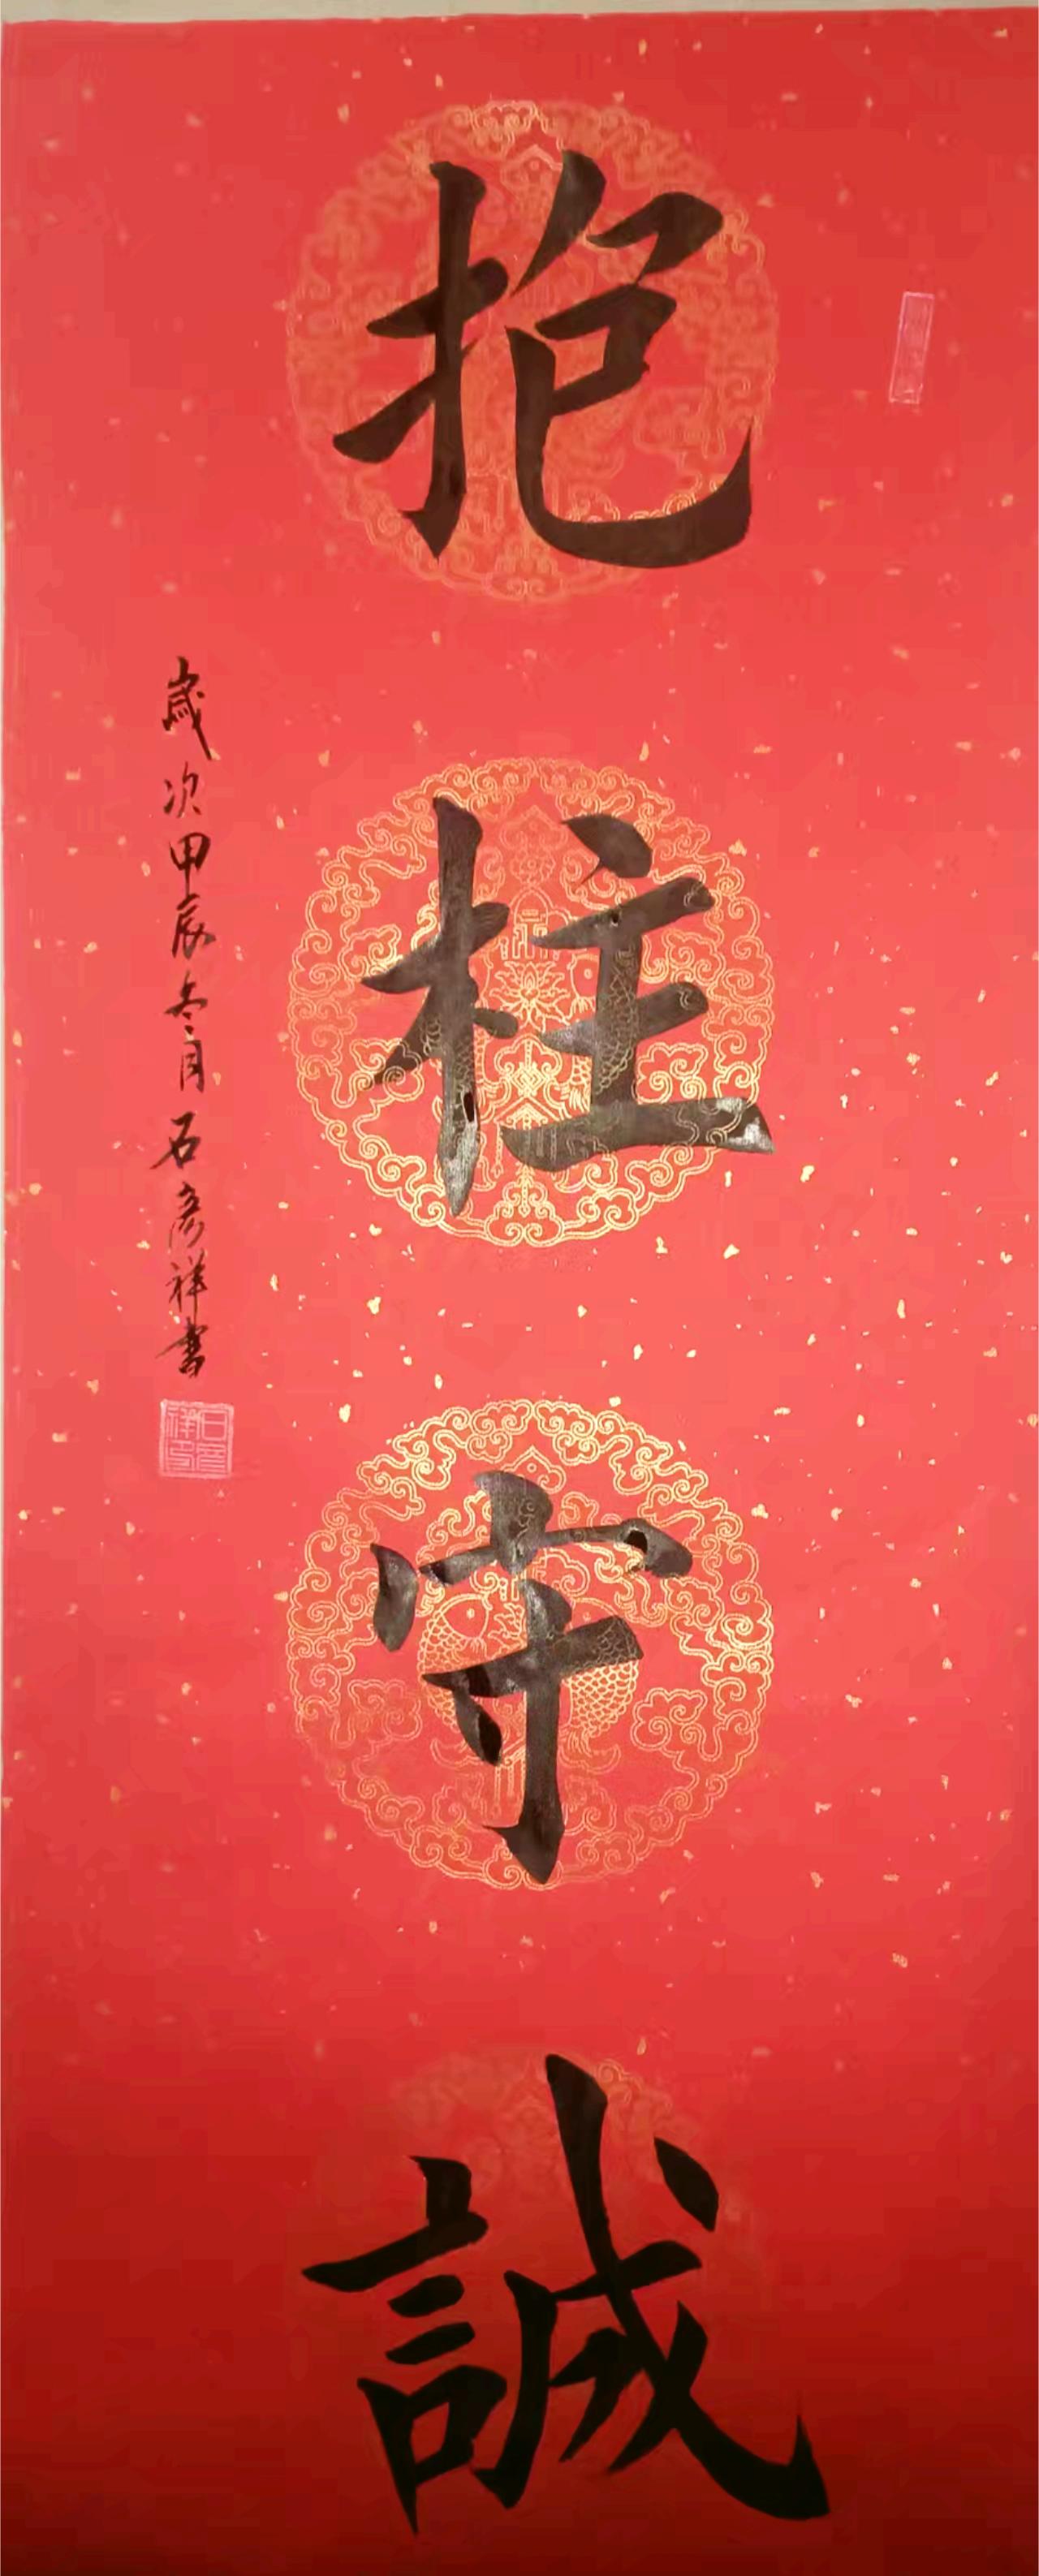 抱柱守誠
歲次甲辰冬月石彥祥書